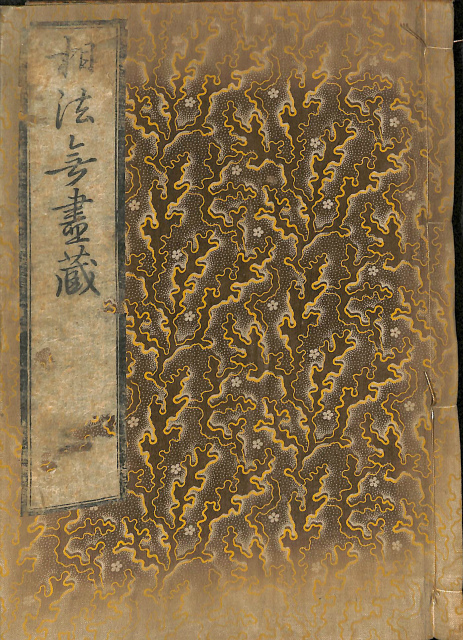 相法無盡藏